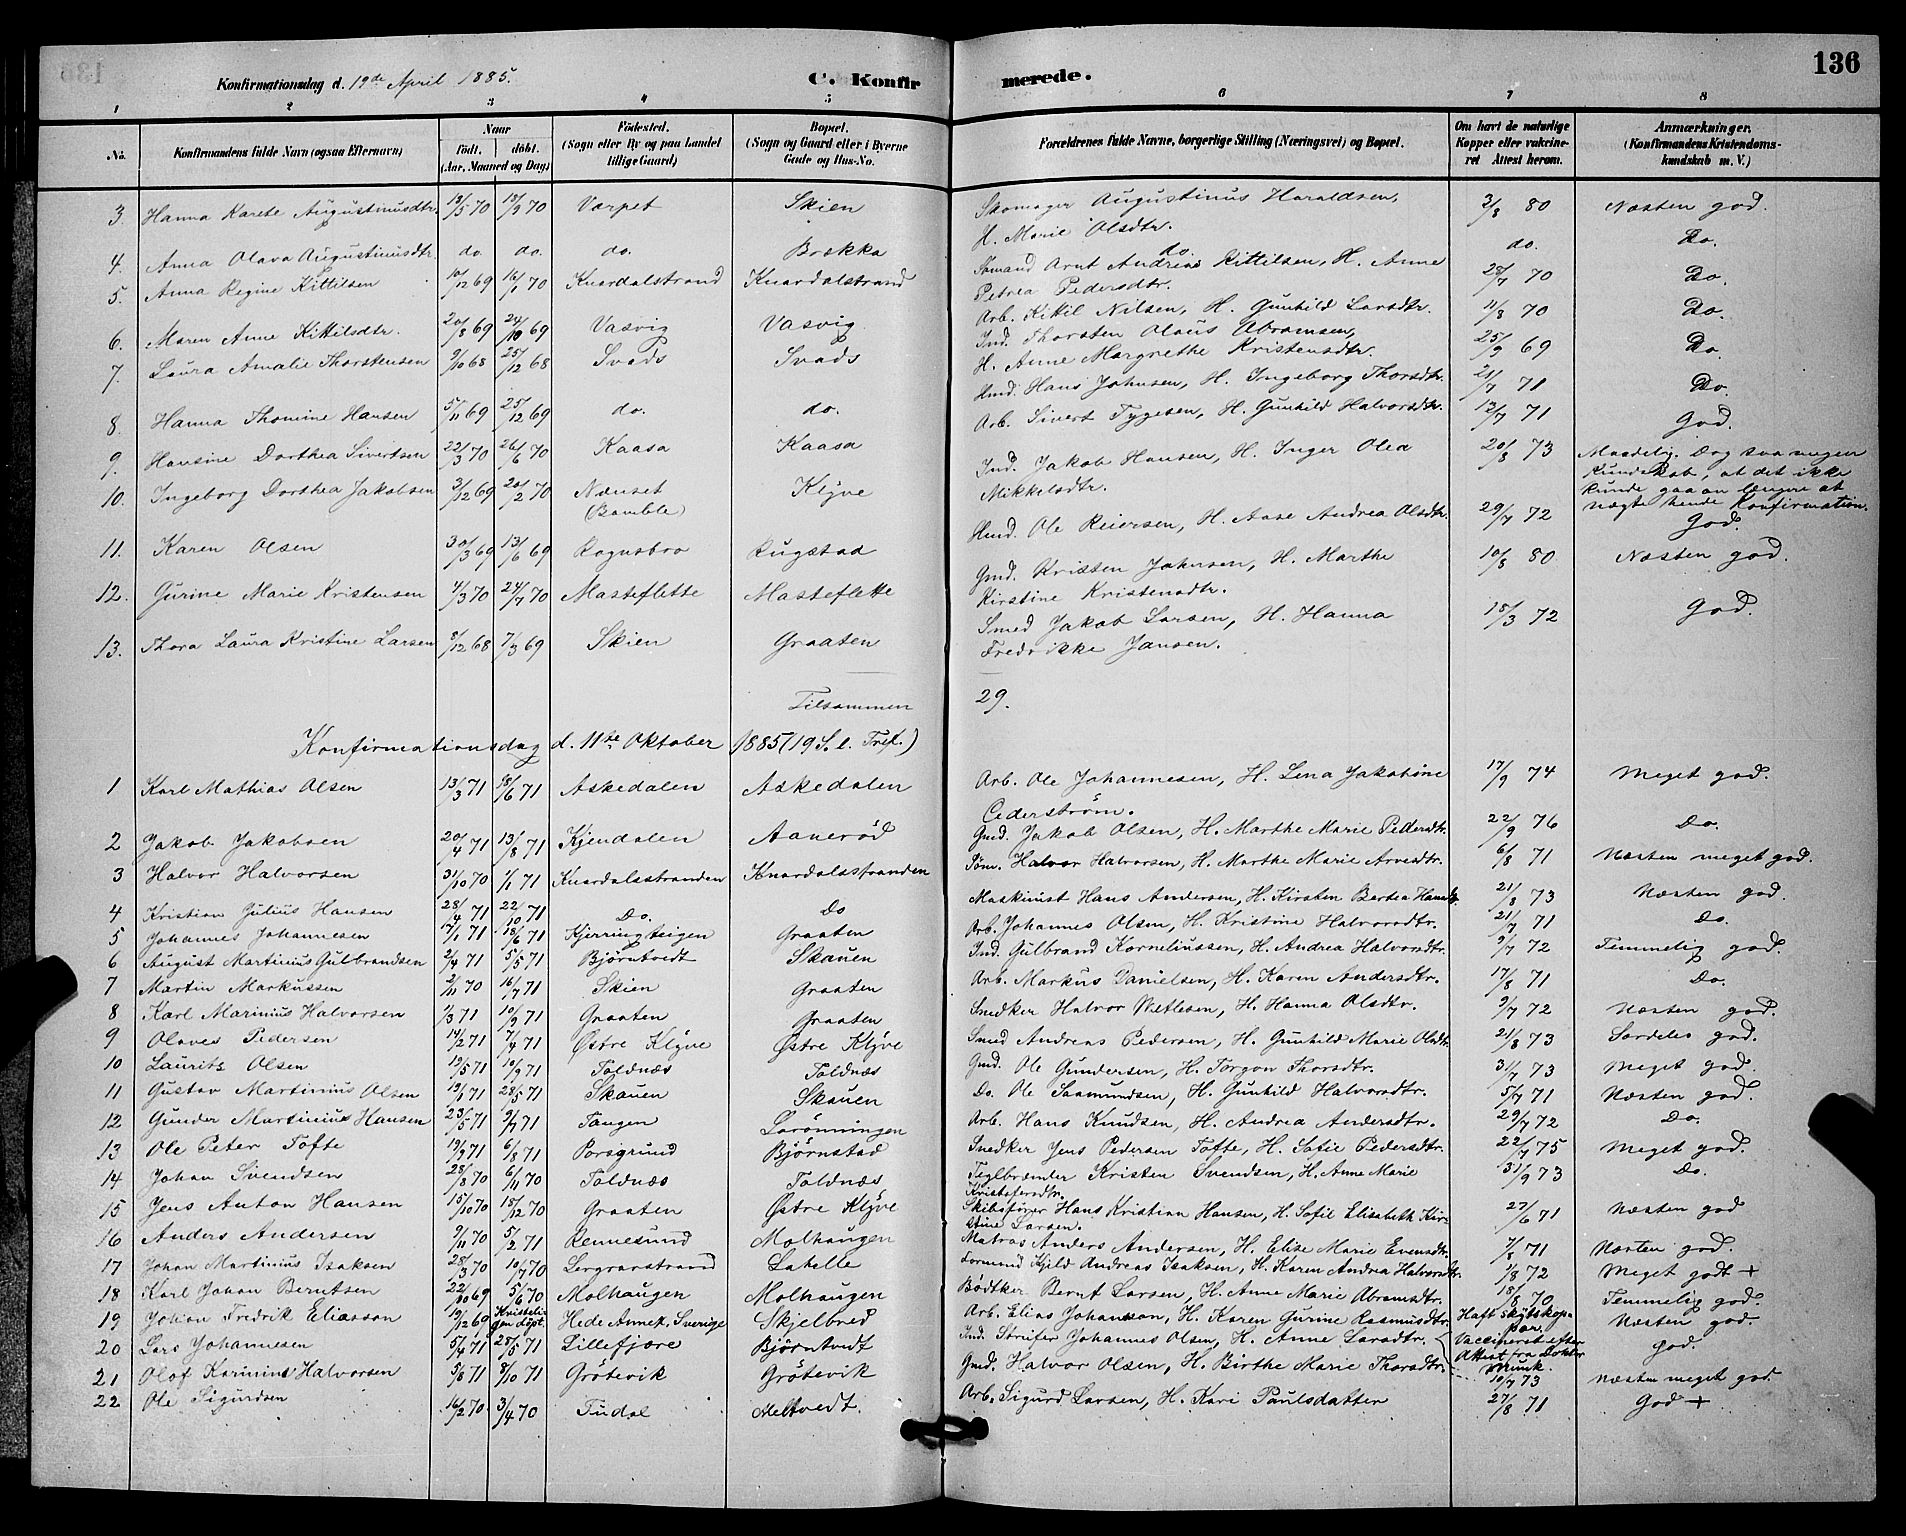 136
Konfirmationsdag d. 19de April 1885. C. Konfir merede.
1 2 3 4 5 6 7 8
No. Konfirmandens fulde Navn (ogsaa Efternavn) Naar født. døbt. (Aar, Maaned og Dag) Fødested. (Sogn eller By og paa Landet tillige Gaard) Bopæl. (Sogn og Gaard eller i Byerne Gade og Hus-No. Forældrenes fulde Navne, borgerlige Stilling (Næringsvei) og Bopæl. Om havt de naturlige Kopper eller vakcineret Attest herom. Anmærkninger. (Konfirmandens Kristendomskundskab m. V.)
3. Hanna Karete Augustinusdtr. 13/5 70 18/9 70 Værpet Skien Skomager Augustinus Haraldsen, H. Marie Olsdtr. 3/8 80 Næsten god.
4. Anna Olava Augustinusdtr. do. do. do. Brekka do. do. Do.
5. Anna Regine Kittilsen 10/12 69 16/1 70 Knardalstrand Knardalstrand Sømand Arnt Andreas Kittilsen, H. Anne Petrea Pedersdtr. 28/7 70 Do.
6. Maren Anne Kittilsdtr. 20/8 69 24/10 69 Vasvig Vasvig Arb. Kittil Nilsen, H. Gunhild Larsdtr. 11/8 70 Do.
7. Laura Amalie Thorstensen 9/10 68 25/12 68 Svads Svads Ind. Thorsten Olaus Abramsen, H. Anne Margrethe Kristensdtr. 25/9 69 Do.
8. Hanna Thomine Hansen 5/11 69 25/12 69 do. do. Hmd. Hans Johnsen, H. Ingeborg Thorsdtr. 21/7 71 Do.
9. Hansine Dorthea Sivertsen 22/3 70 26/6 70 Kaasa Kaasa Arb. Sivert Tygesen, H. Gunhild Halvorsdtr. 12/7 71 God.
10. Ingeborg Dorthea Jakobsen 3/12 69 20/2 70 Nenset (Bamble) Klyve Ind. Jakob Hansen, H. Inger Olea Mikkelsdtr. 20/8 73 Maadelig. Dog saa megen Kundskab, at det ikke kunde gaa an længere at nægte hende Konfirmation.
11. Karen Olsen 30/3 69 13/6 69 Rognsbro Rugstad Hmd. Ole Reiersen, H. Aase Andrea Olsdtr. 29/7 72 God.
12. Gurine Marie Kristensen 4/3 70 24/7 70 Masteflette Masteflette Gmd. Kristen Johnsen, H. Marthe Kirstine Kristensdtr. 10/8 80 Næsten god.
13. Thora Laura Kristine Larsen 8/12 68 7/3 69 Skien Graaten Smed Jakob Larsen, H. Hanna Fredrikke Jansen. 15/3 72 God.
Tilsammen 29.
Konfirmationsdag d. 11te Oktober 1885 (19 S. e. Tref.)
1 Karl Mathias Olsen 13/3 71 18/6 71 Askedalen Askedalen Arb. Ole Johannesen, H. Lena Jakobine Cederstrøm. 17/9 74 Meget god.
2 Jakob Jakobsen 20/4 71 13/8 71 Kjendalen Aanerød Gmd. Jakob Olsen, H. Marthe Marie Pedersdtr. 22/9 76 Do.
3 Halvor Halvorsen 31/10 70 1/1 71 Knardalsstranden Knardalsstranden Søm. Halvor Halvorsen, H. Marthe Marie Arvesdtr. 6/8 71 Næsten meget god.
4 Kristian Julius Hansen 28/4 71 22/10 71 Do. Do Maskinist Hans Andersen, H. Kirsten Bertea Hansdtr. 21/8 73 Næsten god.
5 Johannes Johannesen 17/1 71 18/6 71 Kjerringteigen Graaten Arb. Johannes Olsen, H. Kristine Halvorsdtr. 21/7 71 Do.
6 August Martinius Gulbrandsen 2/4 71 5/5 71 Bjørntvedt Skauen Ind. Gulbrand Korneliussen, H. Andrea Halvorsdtr. 9/7 72 Temmelig god.
7 Martin Markussen 2/11 70 16/7 71 Skien Graaten Arb. Markus Danielsen, H. Karen Andersdtr. 17/8 71 Do.
8 Karl Marinius Halvorsen 1/3 71 10/9 71 Graaten Graaten Snedker Halvor Wetlesen, H. Hanna Olsdtr. 9/7 72 Næsten god.
9 Olaves Pedersen 14/2 71 7/4 71 Østre Klyve Østre Klyve Smed Andreas Pedersen, H. Gunhild Marie Olsdtr. 21/8 73 Særdeles god.
10 Laurits Olsen 19/5 71 10/9 71 Toldnæs Toldnæs Gmd. Ole Gundersen, H. Torgon Thorsdtr. 31/7 73 Meget god.
11 Gustav Martinius Olsen 19/1 71 28/5 71 Skauen Skauen Do. Ole Saamundsen, H. Gunhild Halvorsdtr. 5/7 71 Næsten god.
12 Gunder Martinius Hansen 23/5 71 9/7 71 Tangen Lørønningen Arb. Hans Knudsen, H. Andrea Andersdtr. 29/7 72 Do.
13 Ole Peter Tofte 19/2 71 6/8 71 Porsgrund Bjørnstad Snedker Jens Pedersen Tofte, H. Sofie Pedersdtr. 22/7 75 Meget god.
14 Johan Svendsen 28/8 70 6/11 70 Toldnæs Toldnæs Teglbrænder Kristen Svendsen, H. Anne Marie Kristofersdtr. 31/9 73 Do.
15 Jens Anton Hansen 15/10 70 18/12 70 Graaten Østre Klyve Skibsfører Hans Kristian Hansen, H. Sofie Elisabeth Kirstine Larsen. 27/6 71 Næsten god
16 Anders Andersen 9/11 70 5/2 71 Rennesund Molhaugen Matros Anders Andersen, H. Elise Marie Evensdtr. 7/8 71 Næsten god.
17 Johan Martinius Isaksen 28/3 70 10/7 70 Lergravstrand Labelle Formand Kjild Andreas Isaksen, H. Karen Andrea Halvorsdtr. 1/8 72 Meget godt +
18 Karl Johan Berntsen 22/10 69 5/6 70 Molhaugen Molhaugen Bødtker Bernt Larsen, H. Anne Marie Abramsdtr. 18/8 70 Temmelig god.
19 Johan Fredrik Eliasson 19/12 69 Kristelig døbt. Hede Annex, Sverige Skjelbred Arb. Elias Johansson, H. Karen Gurine Rasmusdtr. Haft skytskopper. Næsten god.
20 Lars Johannesen 5/4 71 28/5 71 Lillefjære Bjørntvedt Ind. Strufer Johannes Olsen, H. Anne Larsdtr. Vaccineret efter Attest fra Doktor Munk. God.
21 Olof Karinius Halvorsen 5/6 71 8/10 71 Grøtevik Grøtevik Gmd. Halvor Olsen, H. Birthe Marie Thorsdtr. 10/7 73 Næsten meget god
22 Ole Sigurdsen 16/2 70 3/4 70 Tudal Meltvedt. Arb. Sigurd Larsen, H. Kari Paulsdatter 27/8 71 God +